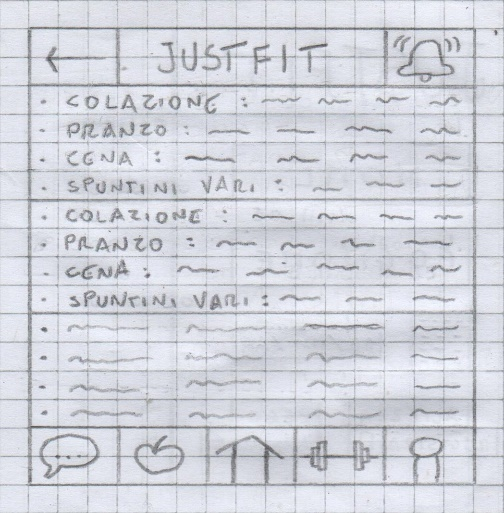 JUSTFIT
· COLAZIONE :
· PRANZO :
· CENA :
· SPUNTINI VARI :
· COLAZIONE :
· PRANZO :
· CENA :
· SPUNTINI VARI :